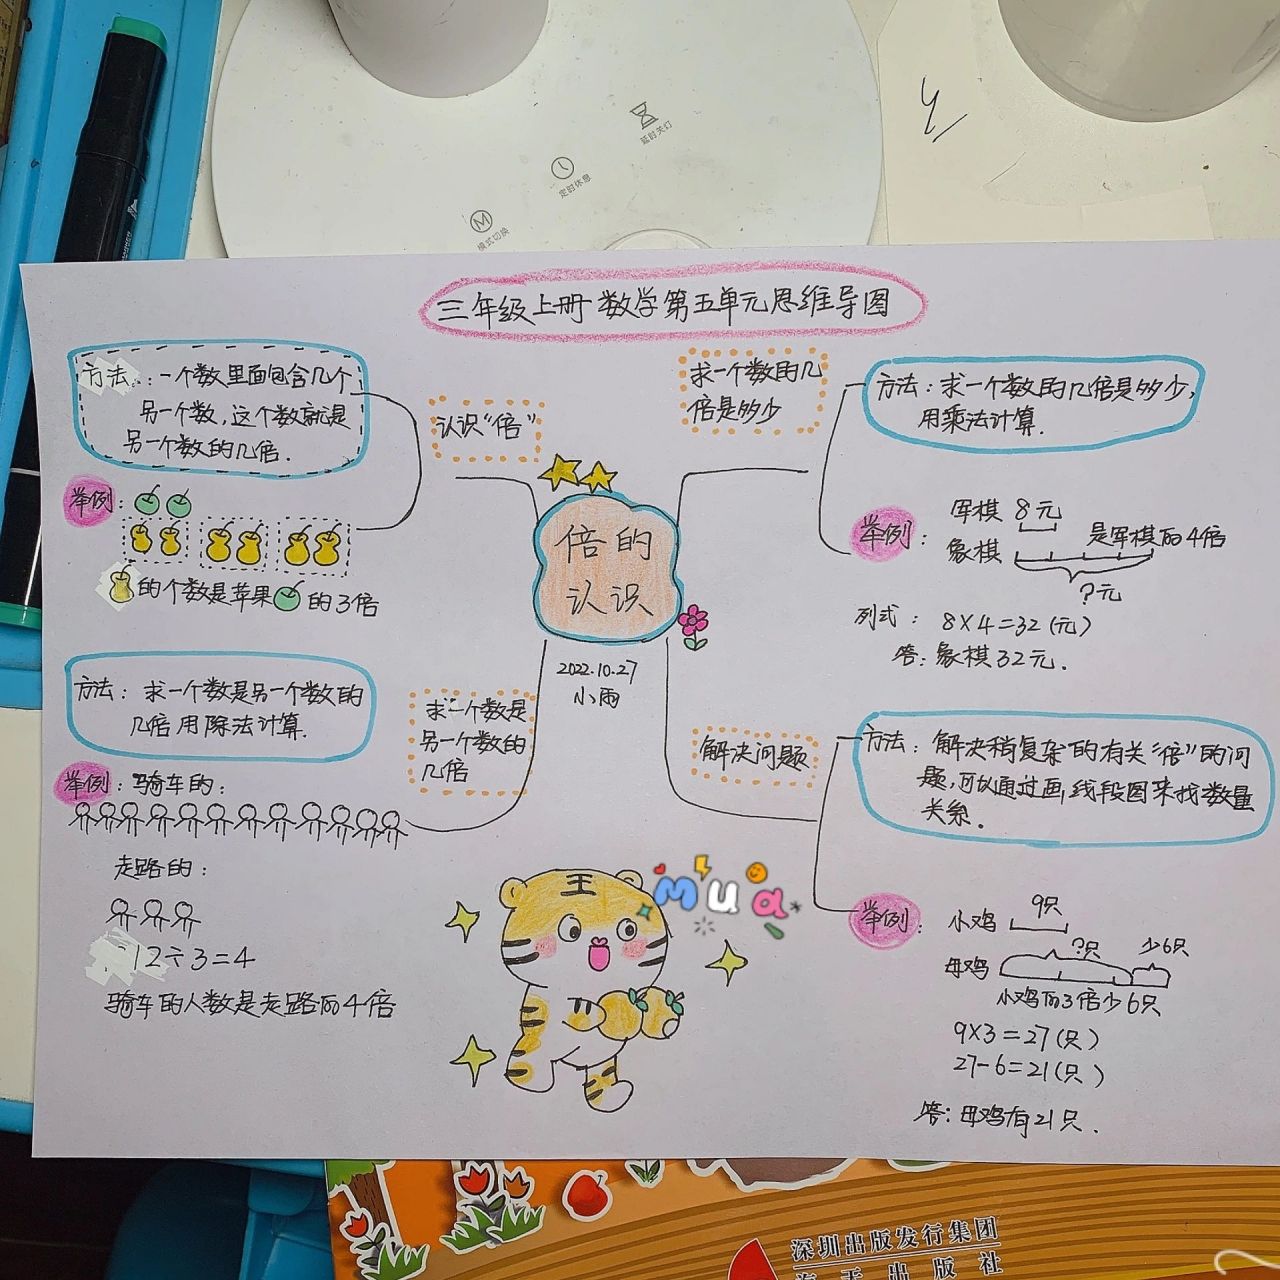 延时关灯
定时休息
M
模式切换
三年级上册数学第五单元思维导图
方法：一个数里面包含几个
另一个数，这个数就是
另一个数的几倍.
认识“倍”
举例：
的个数是苹果的3倍
求一个数的几
倍是多少
方法：求一个数的几倍是多少，
用乘法计算.
举例：
军棋 8元
象棋 是军棋的4倍
?元
列式：8×4=32(元)
答：象棋32元.
倍的
认识
2022.10.27
小雨
方法：求一个数是另一个数的
几倍用除法计算.
求一个数是
另一个数的
几倍
举例：骑车的：
走路的：
12÷3=4
骑车的人数是走路的4倍
解决问题
方法：解决稍复杂的有关“倍”的问
题，可以通过画线段图来找数量
关系.
举例：
小鸡 9只
母鸡 ?只 少6只
小鸡的3倍少6只
9×3=27(只)
27-6=21(只)
答：母鸡有21只.
王
mua
深圳出版发行集团
海天出版社